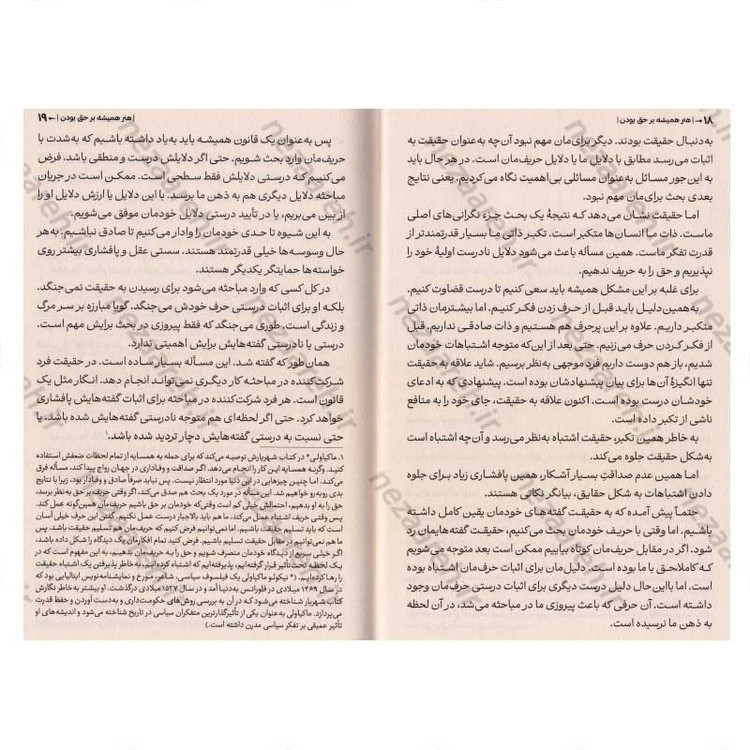 ۱۸ → | هنر همیشه بر حق بودن |
به‌دنبال حقیقت بودند. دیگر برای‌مان مهم نبود آن‌چه به‌عنوان حقیقت به
اثبات می‌رسد مطابق با دلایل ما یا دلایل حریف‌مان است. در هر حال باید
به این‌جور مسائل به‌عنوان مسائلی بی‌اهمیت نگاه می‌کردیم. یعنی نتایج
بعدی بحث برای‌مان مهم نبود.
اما حقیقت نشان می‌دهد که نتیجهٔ یک بحث جزء نگرانی‌های اصلی
ماست. ذات ما انسان‌ها متکبر است. تکبر ذاتی ما بسیار قدرتمندتر از
قدرت تفکر ماست. همین مسأله باعث می‌شود دلایل نادرست اولیهٔ خود را
نپذیریم و حق را به حریف ندهیم.
برای غلبه بر این مشکل همیشه باید سعی کنیم تا درست قضاوت کنیم.
به‌همین‌دلیل باید قبل از حرف زدن فکر کنیم. اما بیشترمان ذاتی
متکبر داریم. علاوه بر این پرحرف هم هستیم و ذات صادقی نداریم. قبل
از فکر کردن حرف می‌زنیم. حتی بعد از این‌که متوجه اشتباهات خودمان
شدیم، باز هم دوست داریم فرد موجهی به‌نظر برسیم. شاید علاقه به حقیقت
تنها انگیزهٔ آن‌ها برای بیان پیشنهادشان بوده است. پیشنهادی که به ادعای
خودشان درست بوده است. اکنون علاقه به حقیقت، جای خود را به منافع
ناشی از تکبر داده است.
به خاطر همین تکبر، حقیقت اشتباه به‌نظر می‌رسد و آن‌چه اشتباه است
به‌شکل حقیقت جلوه می‌کند.
اما همین عدم صداقتِ بسیار آشکار، همین پافشاری زیاد برای جلوه
دادن اشتباهات به شکل حقایق، بیانگر نکاتی هستند.
حتماً پیش آمده که به حقیقت گفته‌های خودمان یقین کامل داشته
باشیم. اما وقتی با حریف خودمان بحث می‌کنیم، حقیقت گفته‌هایمان رد
شود. اگر در مقابل حریف‌مان کوتاه بیاییم ممکن است بعد متوجه می‌شویم
که کاملاحق با ما بوده است. دلیل‌مان برای اثبات حرف‌مان اشتباه بوده
است. اما بااین‌حال دلیل درست دیگری برای اثبات درستی حرف‌مان وجود
داشته است. آن حرفی که باعث پیروزی ما در مباحثه می‌شد، در آن لحظه
به ذهن ما نرسیده است.
| هنر همیشه بر حق بودن | ← ۱۹
پس به‌عنوان یک قانون همیشه باید به‌یاد داشته باشیم که به‌شدت با
حریف‌مان وارد بحث شویم. حتی اگر دلایلش درست و منطقی باشد. فرض
می‌کنیم که درستی دلایلش فقط سطحی است. ممکن است در جریان
مباحثه دلایل دیگری هم به ذهن ما برسد. با این دلایل یا ارزش دلایل او را
از بین می‌بریم، یا در تأیید درستی دلایل خودمان موفق می‌شویم.
به این شیوه تا حدی خودمان را وادار می‌کنیم تا صادق نباشیم. به‌هر
حال وسوسه‌ها خیلی قدرتمند هستند. سستی عقل و پافشاری بیشتر روی
خواسته‌ها حمایتگر یکدیگر هستند.
در کل کسی که وارد مباحثه می‌شود برای رسیدن به حقیقت نمی‌جنگد.
بلکه او برای اثبات درستی حرف خودش می‌جنگد. گویا مبارزه بر سر مرگ
و زندگی است. طوری می‌جنگد که فقط پیروزی در بحث برایش مهم است.
درستی یا نادرستی گفته‌هایش برایش اهمیتی ندارد.
همان‌طور که گفته شد. این مسأله بسیار ساده است. در حقیقت فرد
شرکت‌کننده در مباحثه کار دیگری نمی‌تواند انجام دهد. انگار مثل یک
قانون است. هر فرد شرکت‌کننده در مباحثه برای اثبات گفته‌هایش پافشاری
خواهد کرد. حتی اگر لحظه‌ای هم متوجه نادرستی گفته‌هایش شده باشد. یا
حتی نسبت به درستی گفته‌هایش دچار تردید شده باشد.¹
۱. ماکیاولی* در کتاب شهریارش توصیه می‌کند که برای حمله به همسایه از تمام لحظات ضعفش استفاده
کنید. وگرنه همسایه این کار را انجام می‌دهد. اگر صداقت و وفاداری در جهان رواج پیدا کند، مسأله فرق
می‌کند. اما چنین چیزهایی در این دنیا مورد انتظار نیست. پس نباید صرفاً صادق و وفادار بود، زیرا با نتایج
بدی روبه‌رو خواهیم شد. این مسأله در مورد یک بحث هم صدق می‌کند. اگر وقتی حریف بر حق به‌نظر برسد،
حق را به او بدهیم، احتمالش خیلی کم است وقتی‌که خودم بر حق باشیم حریف‌مان همین‌گونه عمل کند.
پس وقتی حریف اشتباه عمل می‌کند، ما هم باید بالاجبار درست عمل نکنیم. گفتن این حرف خیلی آسان
است که باید تسلیم حقیقت باشیم. اما نمی‌توانیم فرض کنیم که حریف‌مان هم تسلیم حقیقت باشد. پس
ما هم نمی‌توانیم در مقابل حقیقت تسلیم باشیم. فرض کنید تمام افکارمان یک دیدگاه را شکل داده باشد،
اگر خیلی سریع از دیدگاه خودمان منصرف شویم و حق را به حریف‌مان بدهیم، به این مفهوم است که در
یک لحظه تحت تأثیر قرار گرفته‌ایم، پذیرفته‌ایم که اشتباه کرده‌ایم. به خاطر پذیرفتن یک اشتباه حقیقت
را رها کرده‌ایم. (* نیکولو ماکیاولی یک فیلسوف سیاسی، شاعر، مورخ و نمایشنامه‌نویس ایتالیایی بود که
در سال ۱۴۶۹ میلادی در فلورانس به‌دنیا آمد و در سال ۱۵۲۷ میلادی درگذشت. او بیشتر به خاطر نگارش
کتاب شهریار شناخته می‌شود که در آن به بررسی روش‌های حکومت‌داری و به‌دست آوردن و حفظ قدرت
می‌پردازد. ماکیاولی به‌عنوان یکی از تأثیرگذارترین متفکران سیاسی در تاریخ شناخته می‌شود و اندیشه‌های او
تأثیر عمیقی بر تفکر سیاسی مدرن داشته است.)